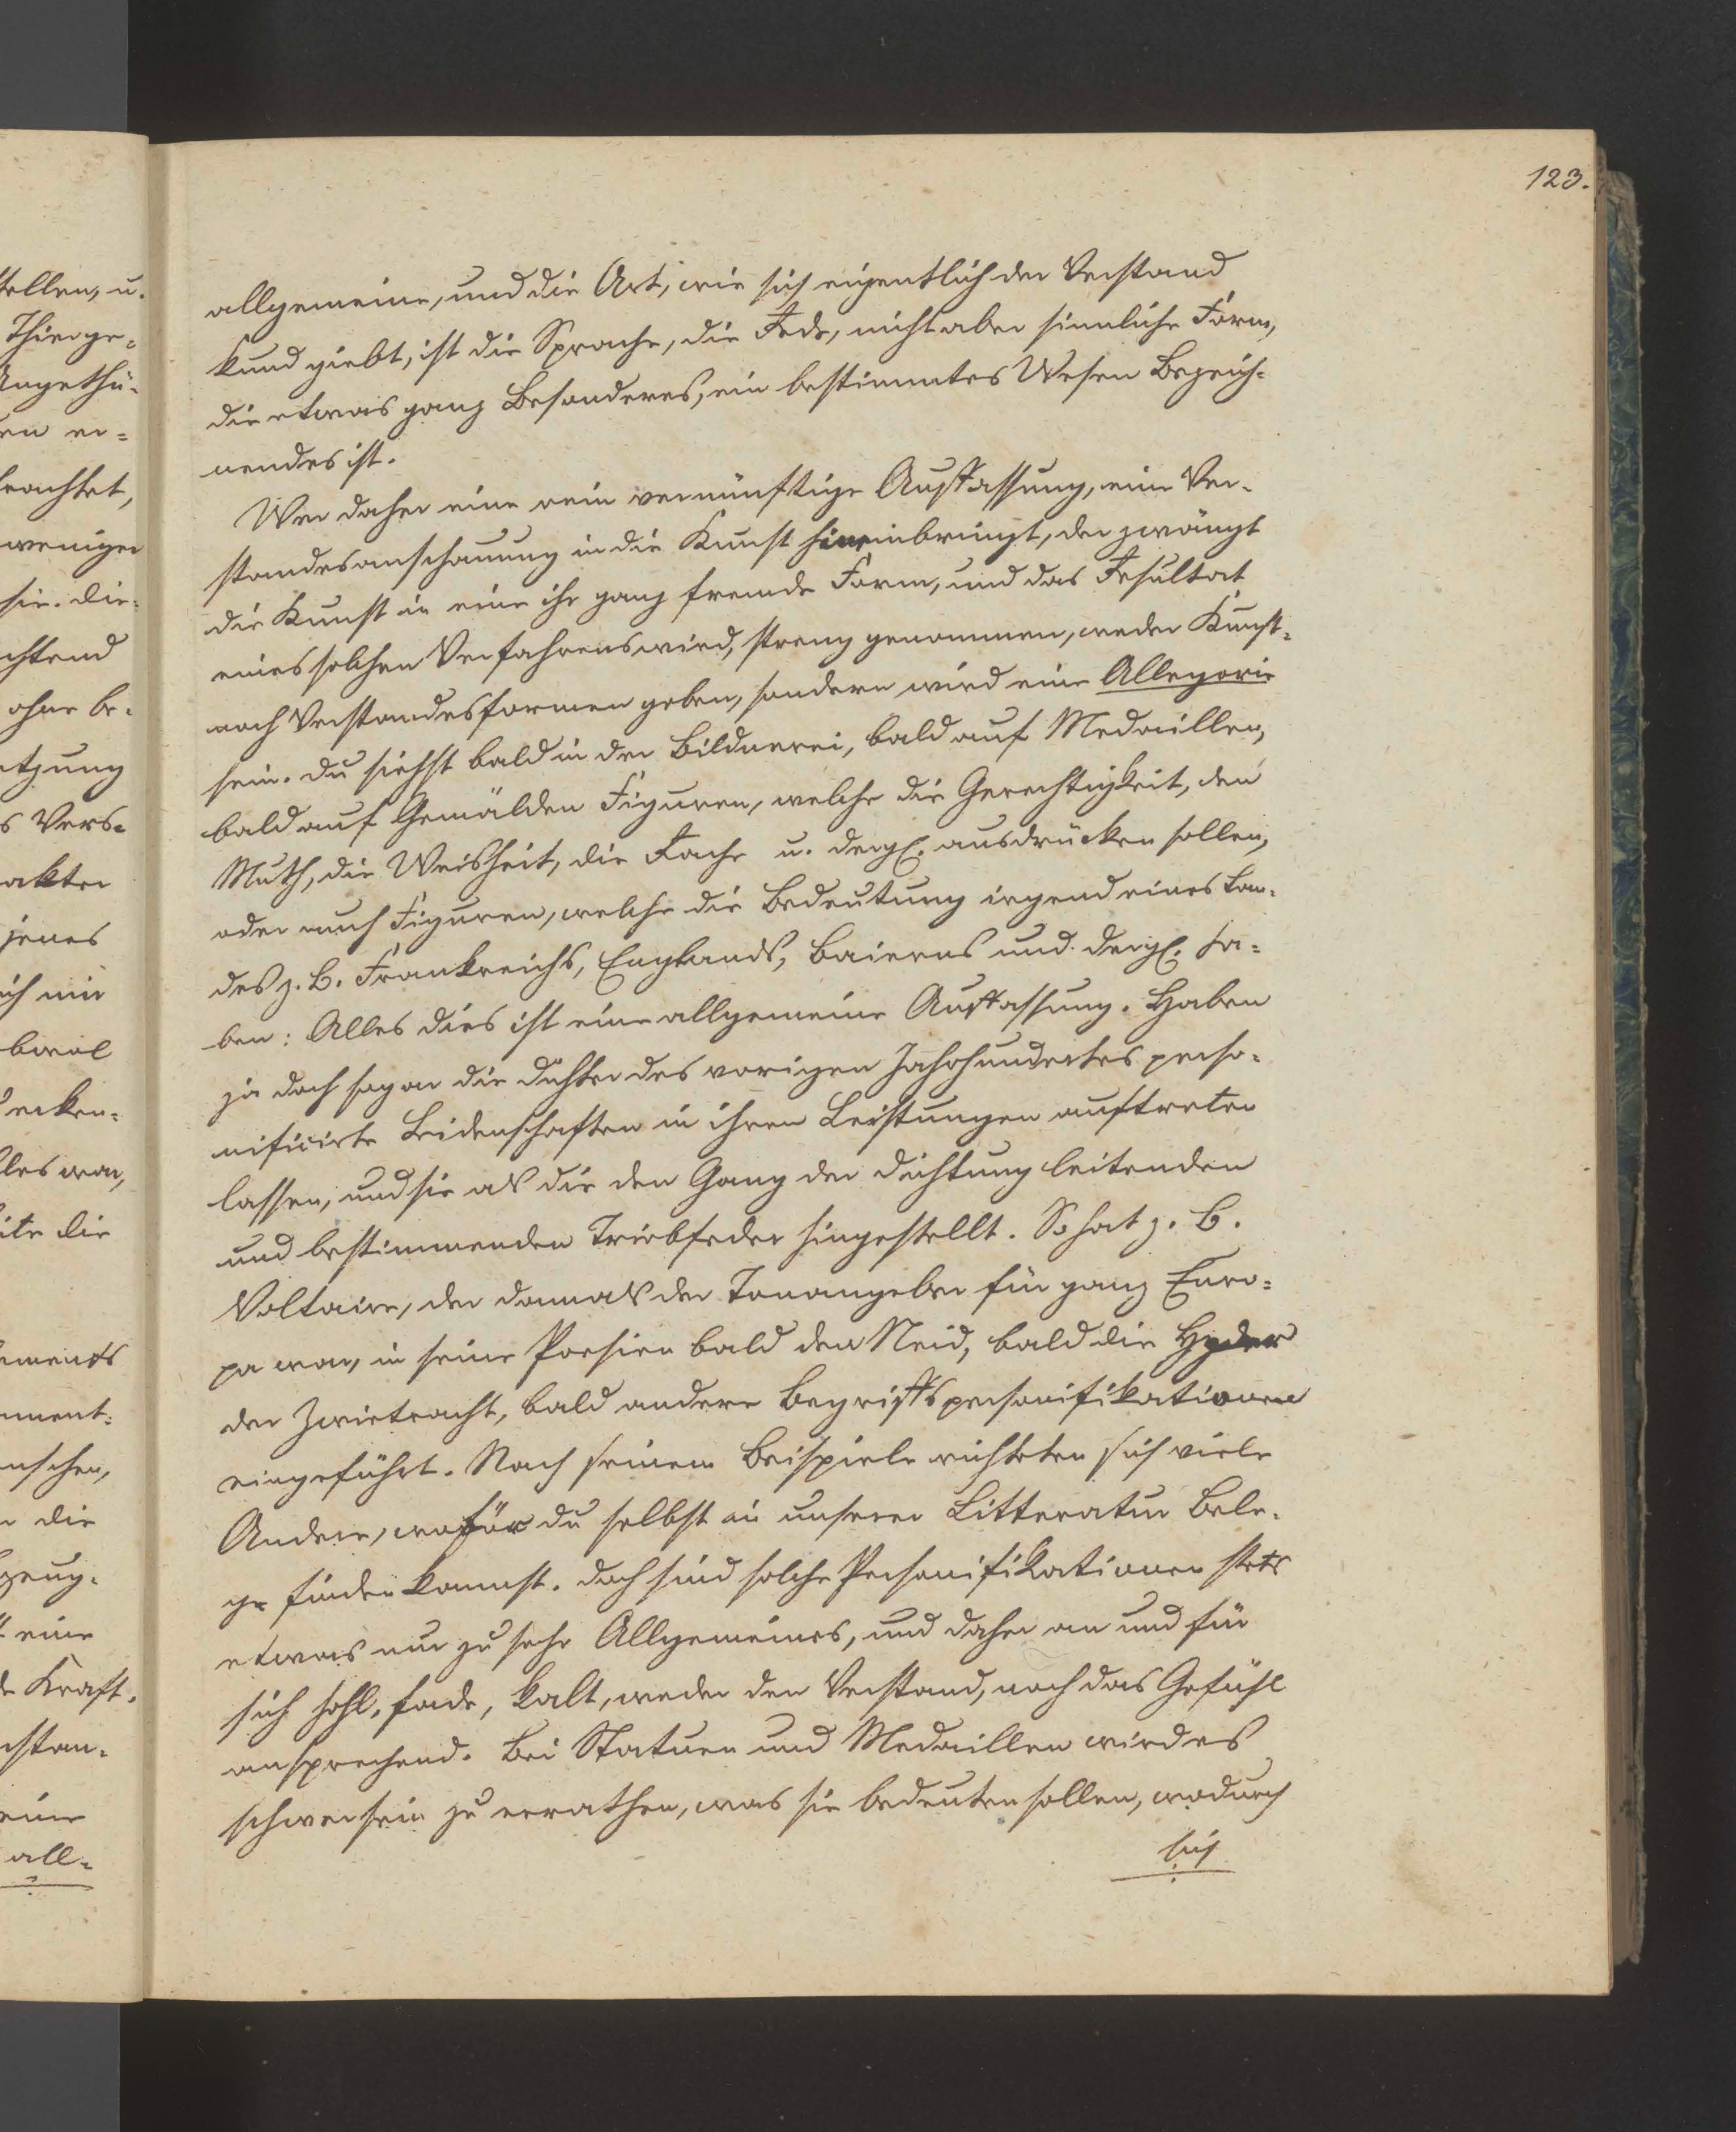 123.
allgemeine, und die Art, wie sich eigentlich der Verstand
kund giebt, ist die Sprache, die Rede, nicht aber sinnliche Form,
die etwas ganz Besonderes, ein bestimmtes Wesen Bezeich-
nendes ist.
Wer daher eine rein vernünftige Auffassung, eine Ver-
standesanschauung in die Kunst hineinbringt, der zwängt
die Kunst in eine ihr ganz fremde Form, und das Resultat
eines solchen Verfahrens wird, streng genommen, weder Kunst-
noch Verstandesformen geben, sondern wird eine Allegorie
sein. Du siehst bald in der Bildnerei, bald auf Medaillen,
bald auf Gemälden Figuren, welche die Gerechtigkeit, den
Muth, die Weisheit, die Rache u. dergl. ausdrücken sollen,
oder auch Figuren, welche die Bedeutung irgend eines Lan-
des z. B. Frankreichs, Englands, Baierns und dergl. ha-
ben: Alles dies ist eine allgemeine Auffassung. Haben
ja doch sogar die Dichter des vorigen Jahrhundertes perso-
nificirte Leidenschaften in ihren Leistungen auftreten
lassen, und sie als die den Gang der Dichtung leitenden
und bestimmenden Triebfeder hingestellt. So hat z. B.
Voltaire, der damals der Tonangeber für ganz Euro-
pa war, in seine Poesien bald den Neid, bald die Hyder
der Zwietracht, bald andere Begriffspersonifikationen
eingeführt. Nach seinem Beispiele richteten sich viele
Andere, wofür du selbst in unserer Litteratur Bele-
ge finden kannst. Doch sind solche Personifikationen stets
etwas nur zu sehr Allgemeines, und daher an und für
sich hohl, fade, kalt, weder den Verstand, noch das Gefühl
ansprechend. Bei Statuen und Medaillen wird es
schwer sein zu errathen, was sie bedeuten sollen, wodurch
sich